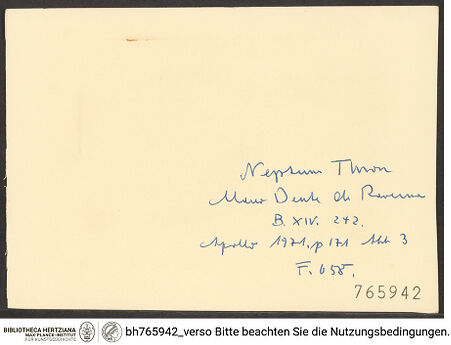 Neptun Thron
Marco Dente da Ravenna
B. XIV. 242.
Apollo 1971, p 171 Abb 3
F. 658.
765942
BIBLIOTHECA HERTZIANA
MAX-PLANCK-INSTITUT
FÜR KUNSTGESCHICHTE
bh765942_verso Bitte beachten Sie die Nutzungsbedingungen.